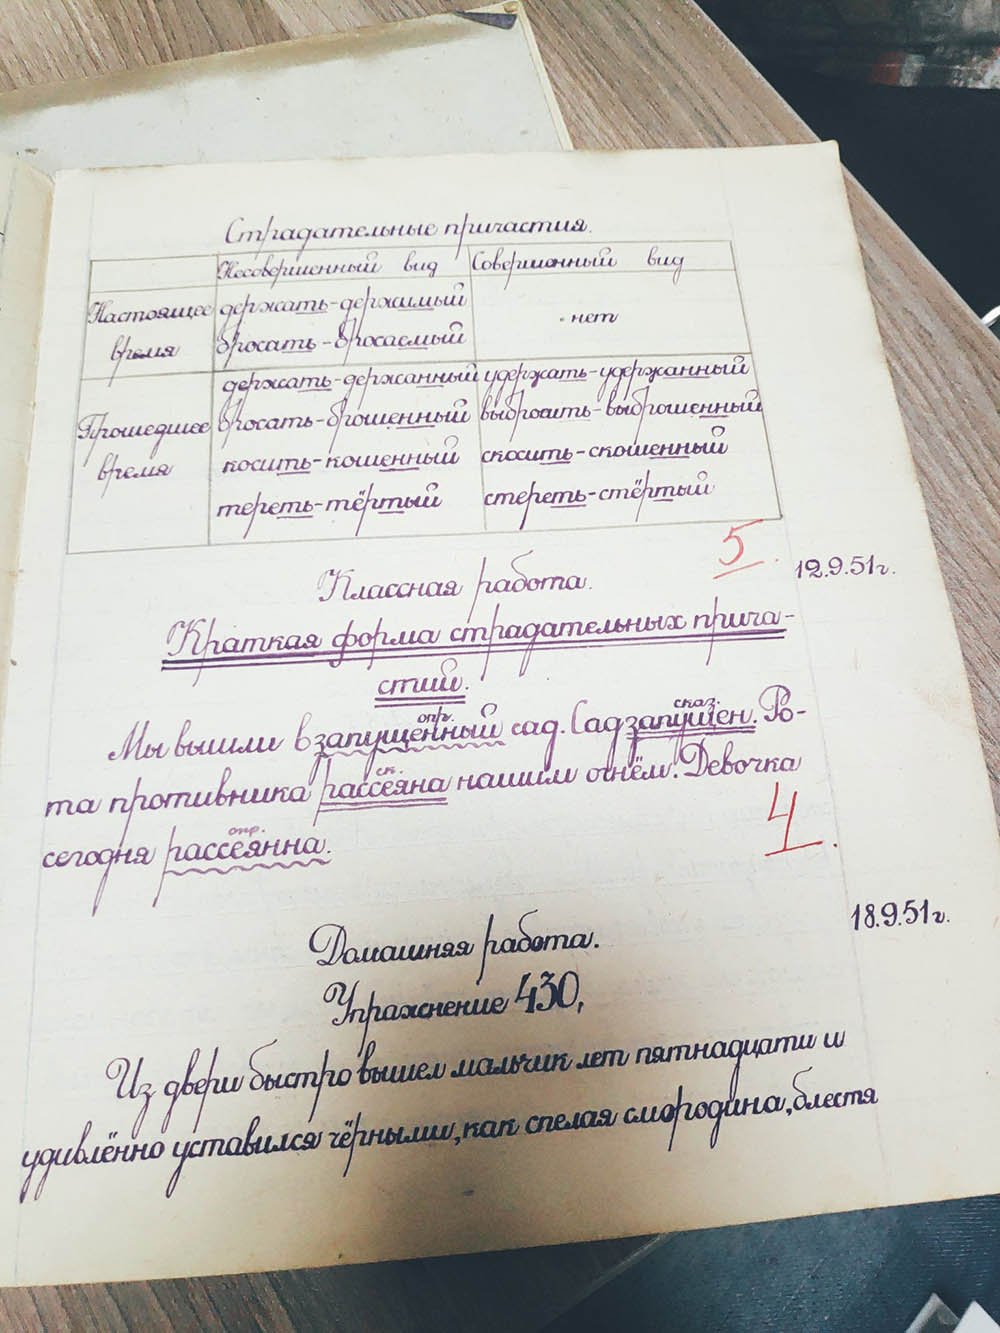 Страдательные причастия.
Несовершенный вид Совершенный вид
Настоящее время
держать-держимый
бросать-бросаемый
нет
Прошедшее время
держать-держанный удержать-удержанный
бросать-брошенный выбросить-выброшенный
косить-кошенный скосить-скошенный
тереть-тёртый стереть-стёртый
5
Классная работа. 12.9.51г.
Краткая форма страдательных прича-
стий.
опр. сказ.
Мы вышли в запущенный сад. Сад запущен. Ро-
ск.
та противника рассеяна нашим огнём. Девочка
опр.
сегодня рассеянна.
4.
18.9.51г.
Домашняя работа.
Упражнение 430,
Из двери быстро вышел мальчик лет пятнадцати и
удивлённо уставился чёрными, как спелая смородина, блестя